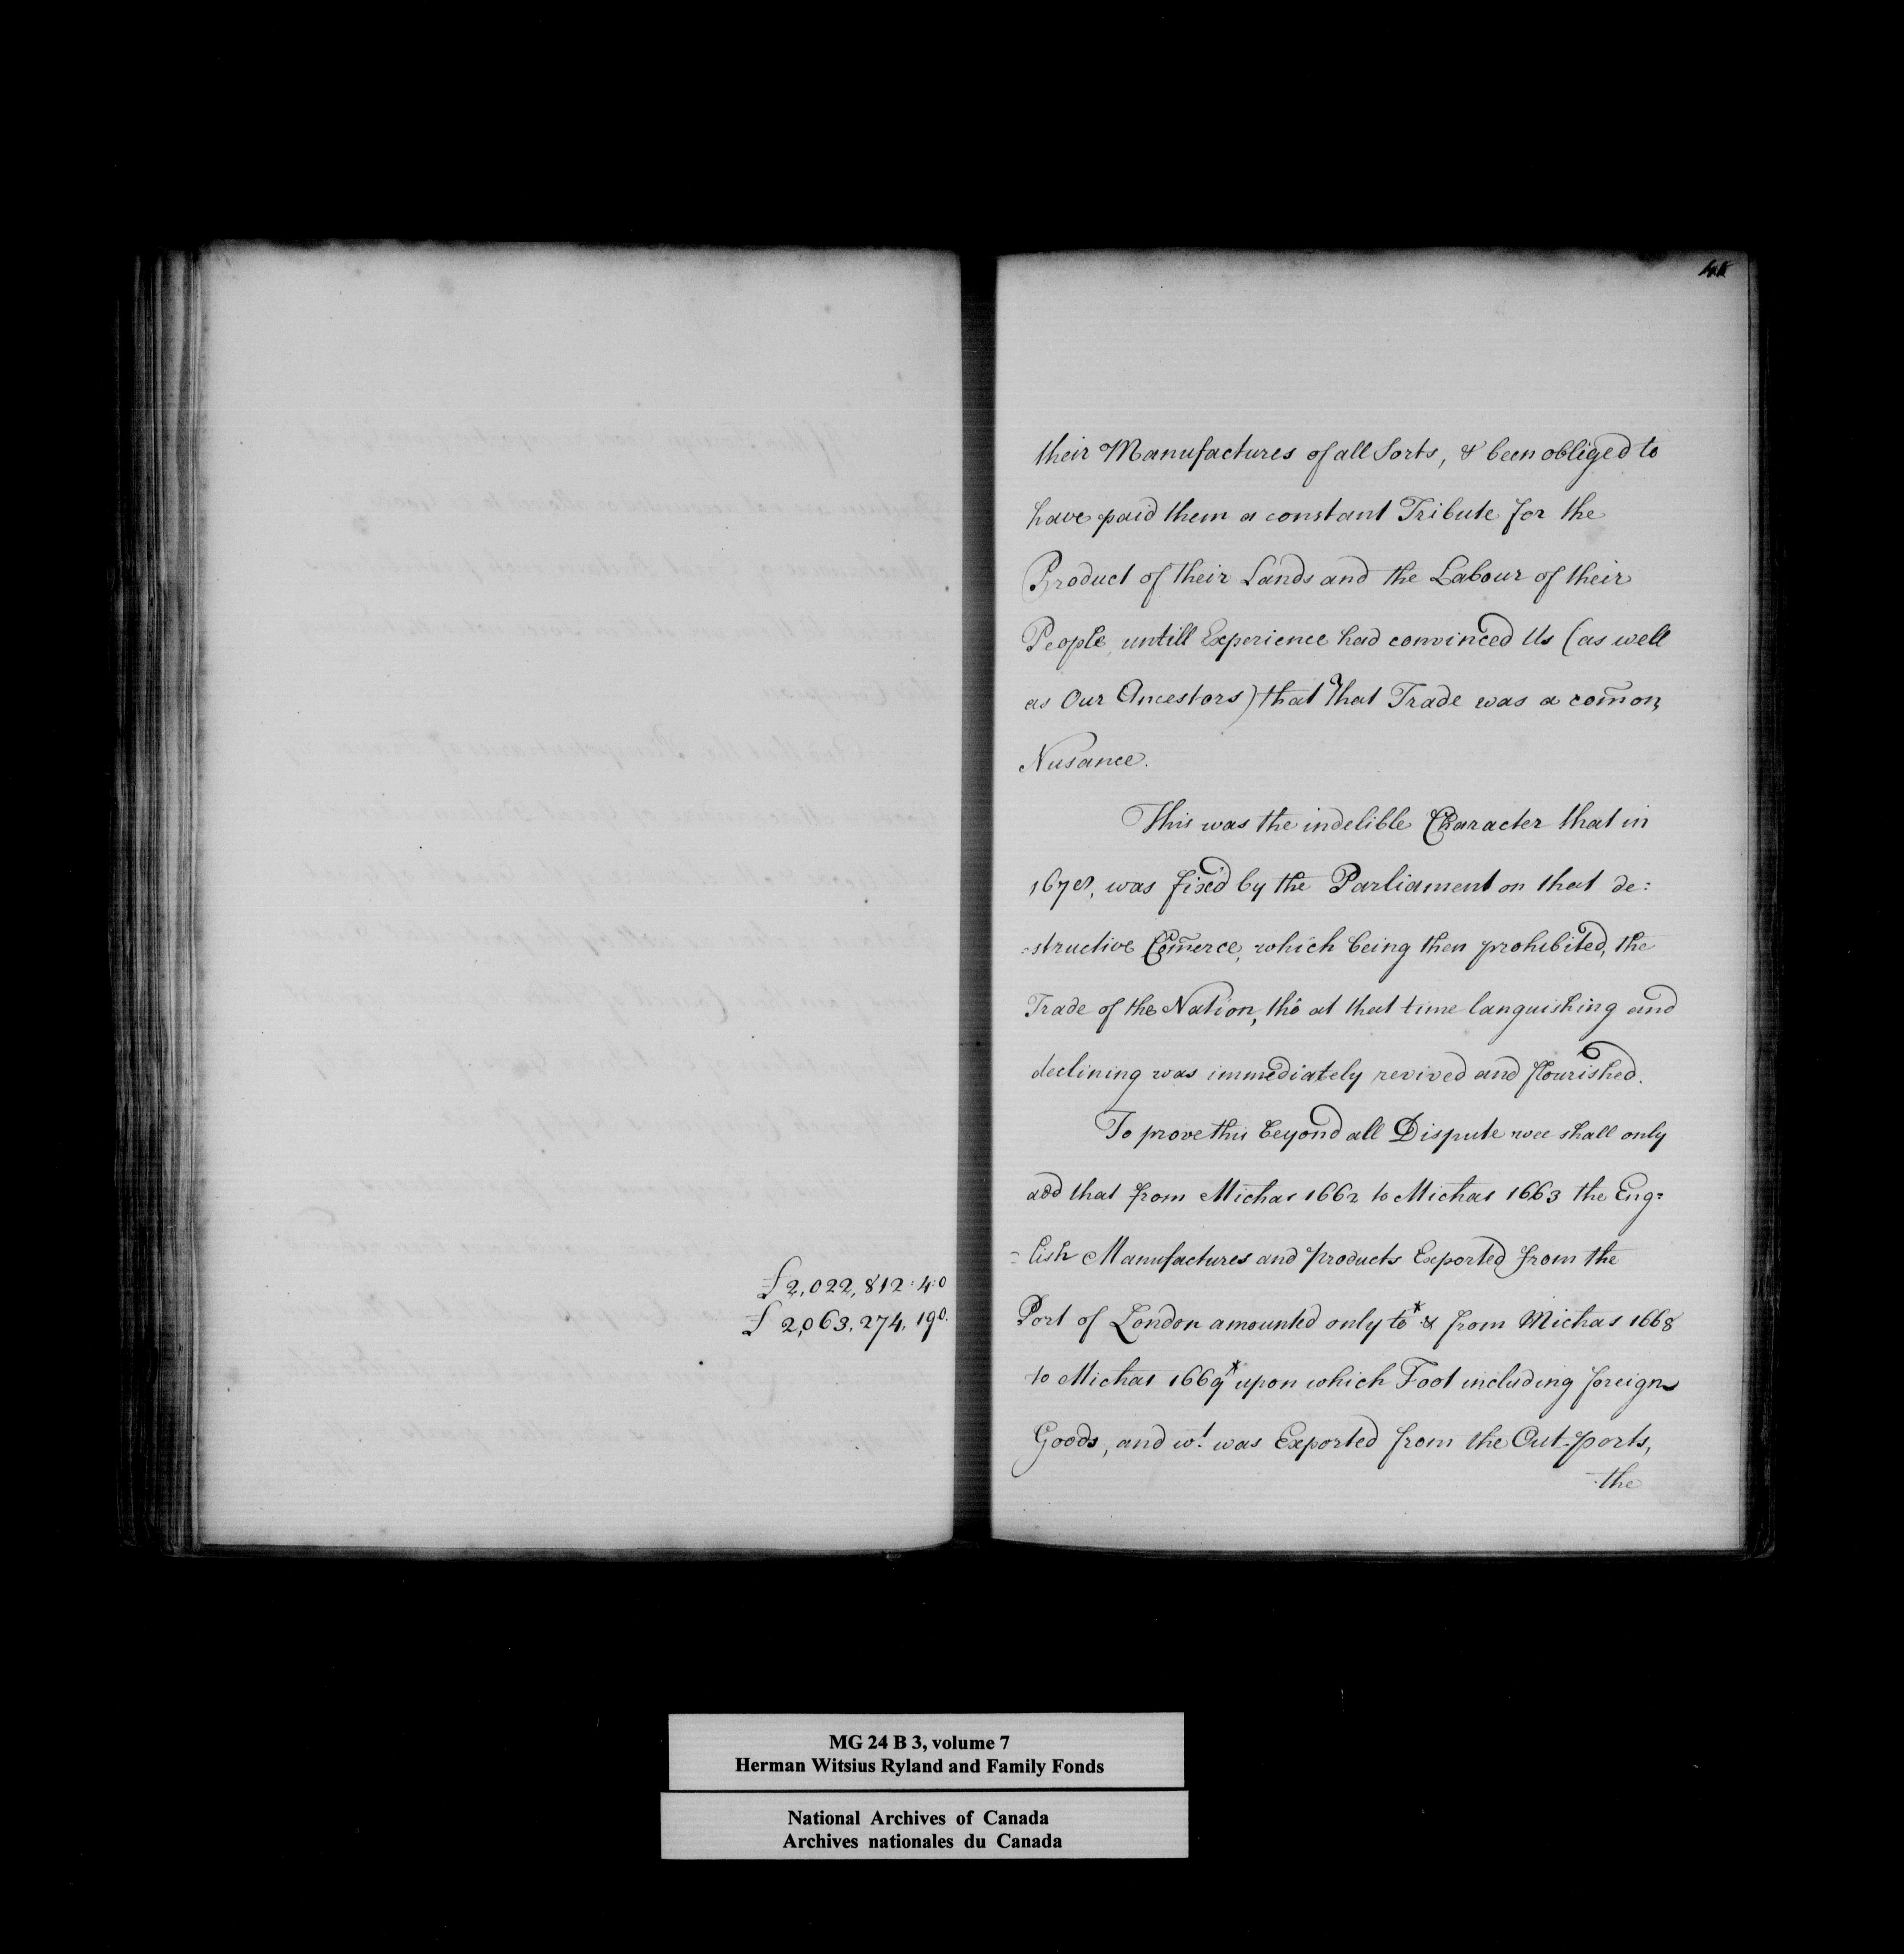 £2,022,812:4:0
£2,063,274,19 0.
their Manufactures of all Sorts, & been obliged to
have paid them a constant Tribute for the
Product of their Lands and the Labour of their
People, untill Experience had convinced Us (as well
as Our Ancestors) that that Trade was a com̄on
Nusance.
This was the indelible Character that in
1678, was fixed by the Parliament on that de:
:structive Com̄erce, which being then prohibited, the
Trade of the Nation, tho at that time languishing and
declining was immediately revived and flourished.
To prove this beyond all Dispute wee shall only
add that from Michas 1662 to Michas 1663 the Eng=
=lish Manufactures and products Exported from the
Port of London amounted only to* & from Michas 1668
to Michas 1669* upon which Foot including foreign
Goods, and wt. was Exported from the Out-ports,
the
MG 24 B 3, volume 7
Herman Witsius Ryland and Family Fonds
National Archives of Canada
Archives nationales du Canada